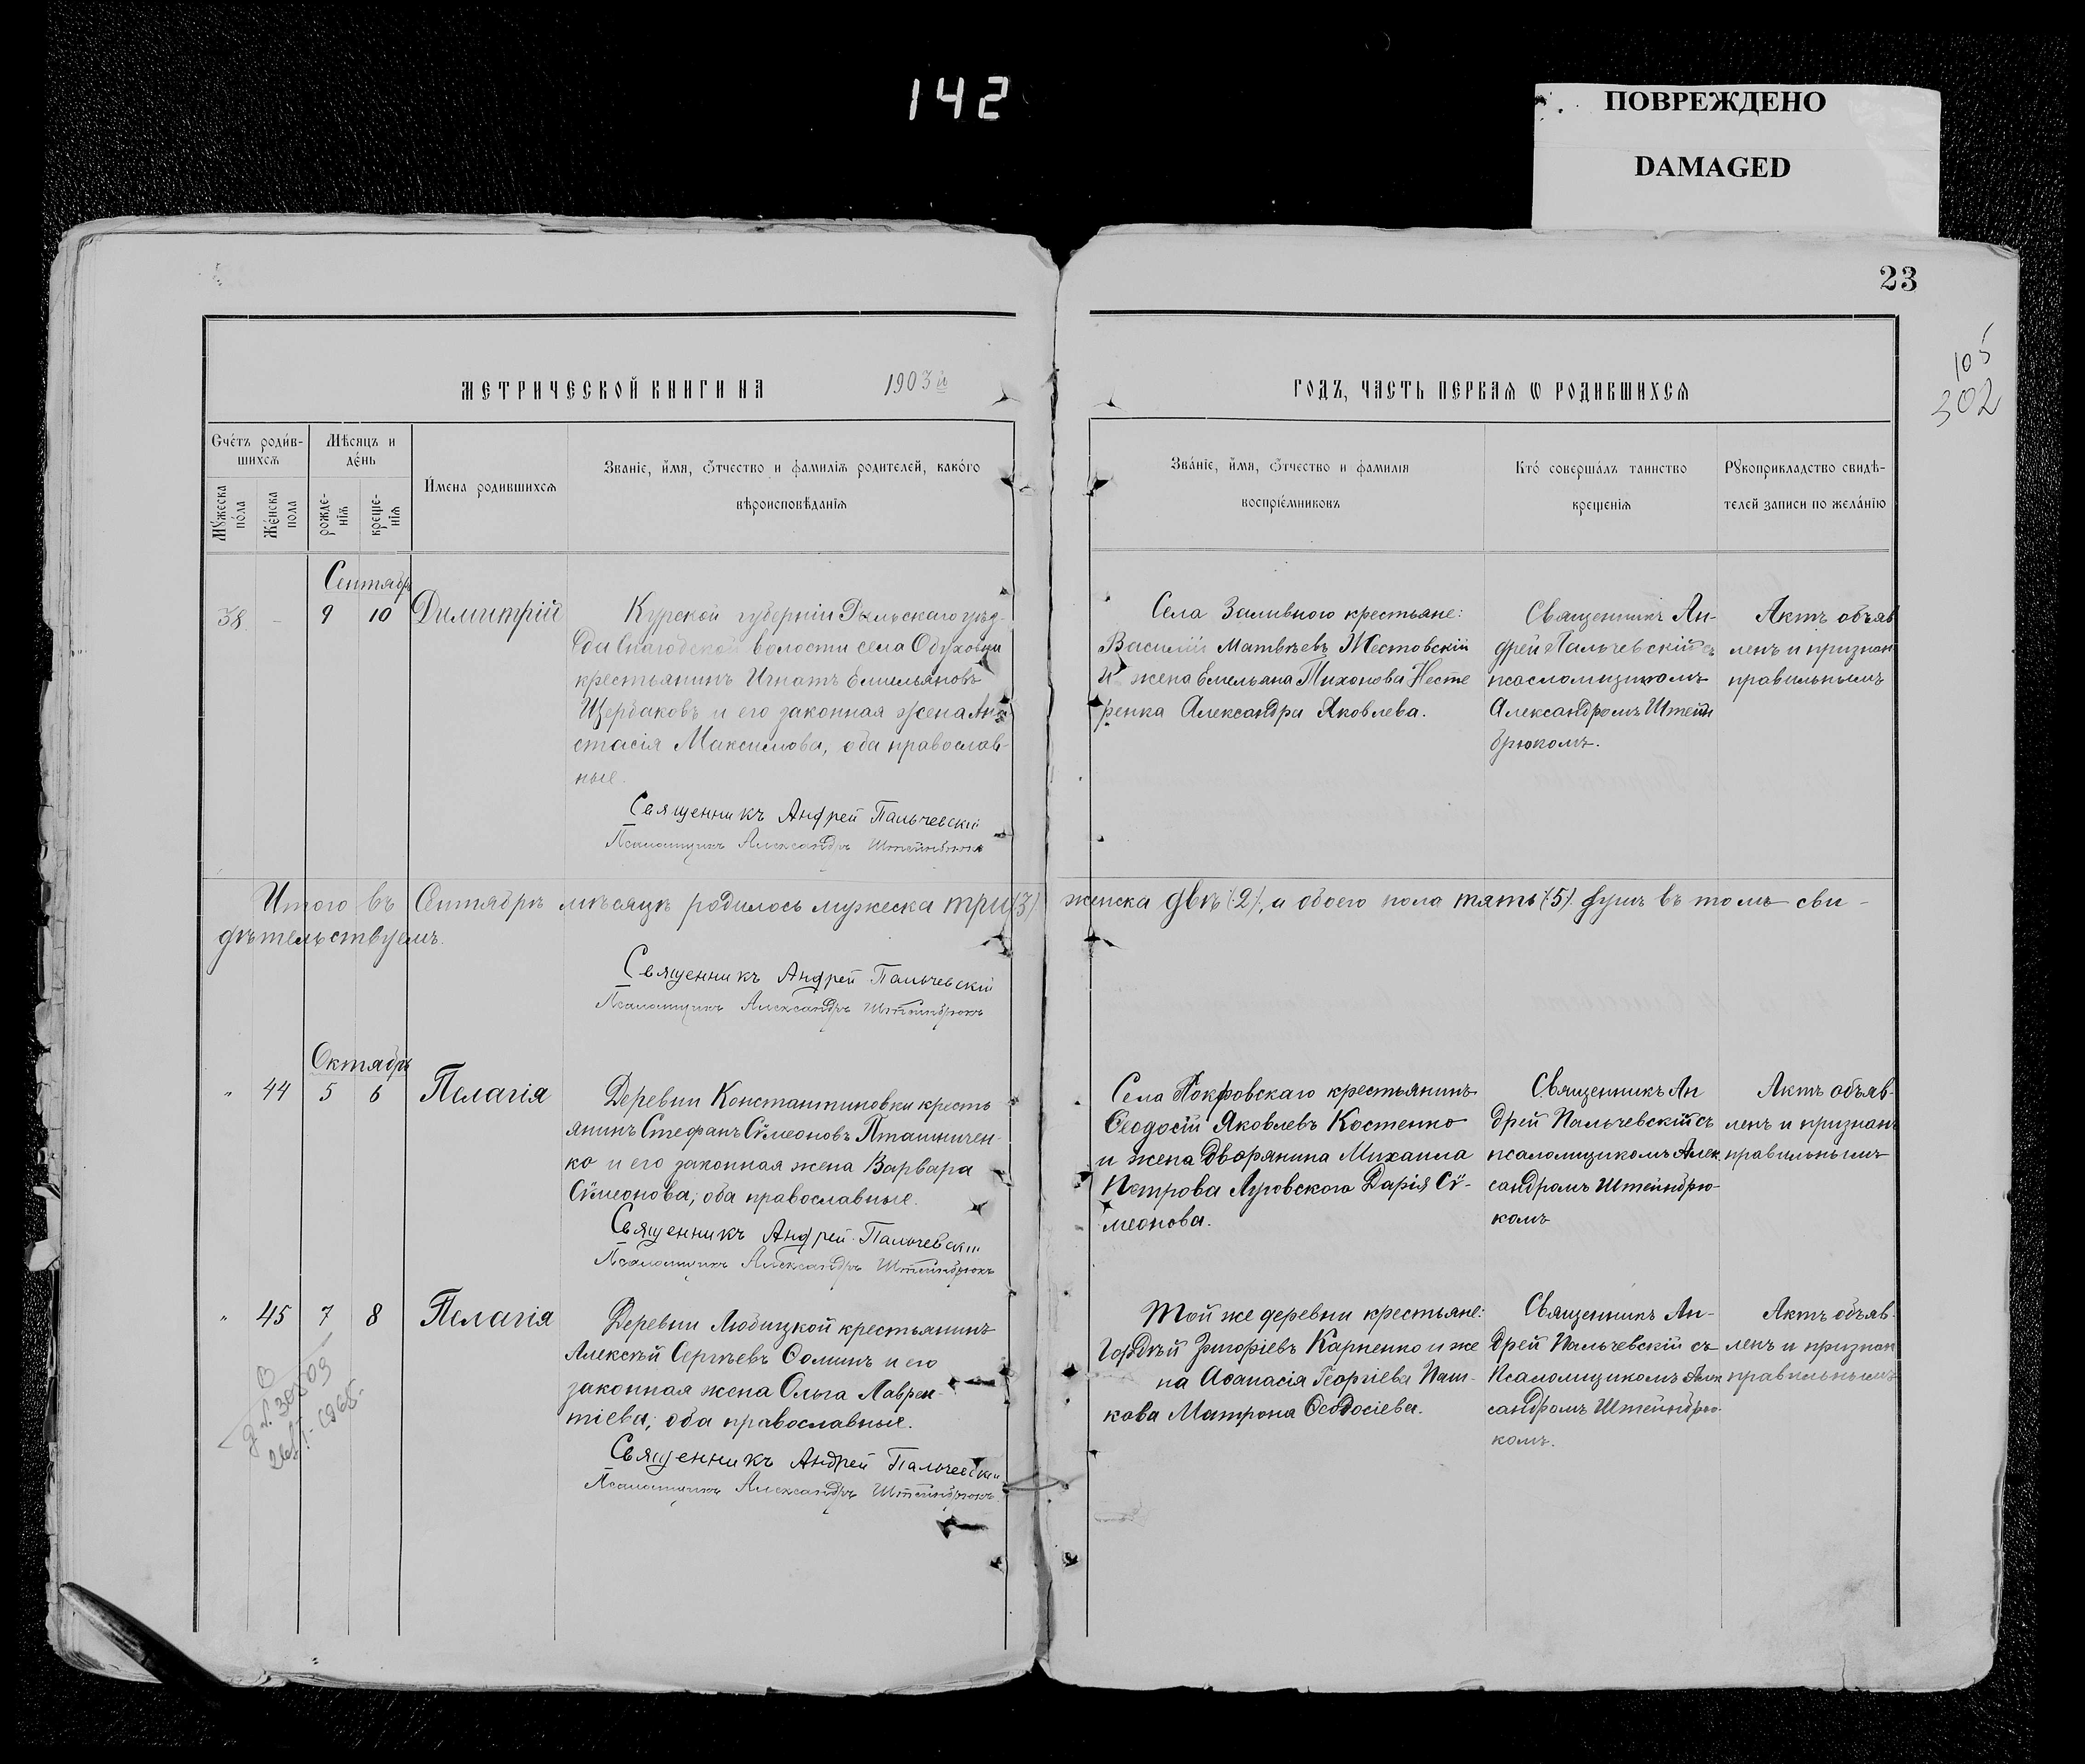 142
ПОВРЕЖДЕНО
DAMAGED
23
105
302
МЕТРИЧЕСКОЙ КНИГИ НА 1903й
ГОДЪ, ЧАСТЬ ПЕРВАЯ Ѡ РОДИВШИХСѦ
Счетъ родив-
шихсѧ
Мѣсяцъ и
день
Мꙋжеска
пола
Женска
пола
рожде-
нїѧ
креще-
нїѧ
Имена родившихсѧ
Званїе, имя, ѿчество и фамилїѧ родителей, какого
вѣроисповѣданїѧ
Званїе, имя, ѿчество и фамилїя
воспрїемниковъ
Кто совершалъ таинство
крещенїя
Рꙋкоприкладство свидѣ-
телей записи по желанїю
Сентябрь
38 - 9 10 Димитрій
Курской губерніи Рыльскаго уѣз-
волости села
крестьянинъ Игнатъ Емельяновъ
Щербаковъ и его законная жена Ана
стасія Максимова, оба православ-
ные.
Священникъ Андрей Пальчевскій
Псаломщикъ Александръ Штейнбрюкъ
Села Заливного крестьяне:
Василій Матвѣевъ Жестовскій
и жена Емельяна Тихонова Несте
ренка Александра Яковлева.
Священникъ Ан-
дрей Пальчевскій съ
псаломщикомъ
Александромъ Штейн
брюкомъ.
Актъ объяв
ленъ и признан
правильнымъ
Итого въ Сентябрѣ мѣсяцѣ родилось мужеска три (3) женска двѣ (2), а обоего пола пять (5) душъ въ томъ сви-
дѣтельствуемъ.
Священникъ Андрей Пальчевскій
Псаломщикъ Александръ Штейнбрюкъ
Октябрь
" 44 5 6 Пелагія
Деревни Константиновки кресть
янинъ Стефанъ Сѵмеоновъ Пташничен-
ко и его законная жена Варвара
Сѵмеонова, оба православные.
Священникъ Андрей Пальчевскій
Псаломщикъ Александръ Штейнбрюкъ
Села Покровскаго крестьянинъ
Ѳеодосій Яковлевъ Костенко
и жена дворянина Михаила
Петрова Дарія Сѵ-
меонова.
Священникъ Ан
дрей Пальчевскій съ
псаломщикомъ Алек
сандромъ Штейнбрю-
комъ
Актъ объяв-
ленъ и признанъ
правильнымъ
" 45 7 8 Пелагія
Деревни Любицкой крестьянинъ
Алексѣй Сергѣевъ Ѳоминъ и его
законная жена Ольга Лаврен-
тіева, оба православные.
Священникъ Андрей Пальчевскій
Псаломщикъ Александръ Штейнбрюкъ
Той же деревни крестьяне:
Гордѣй Григоріевъ Карпенко и же
на Аѳанасія Георгіева Паш-
кова Матрона Ѳеодосіева.
Священникъ Ан-
дрей Пальчевскій съ
Псаломщикомъ Алек
сандромъ Штейнбрю-
комъ.
Актъ объяв-
ленъ и признан
правильнымъ